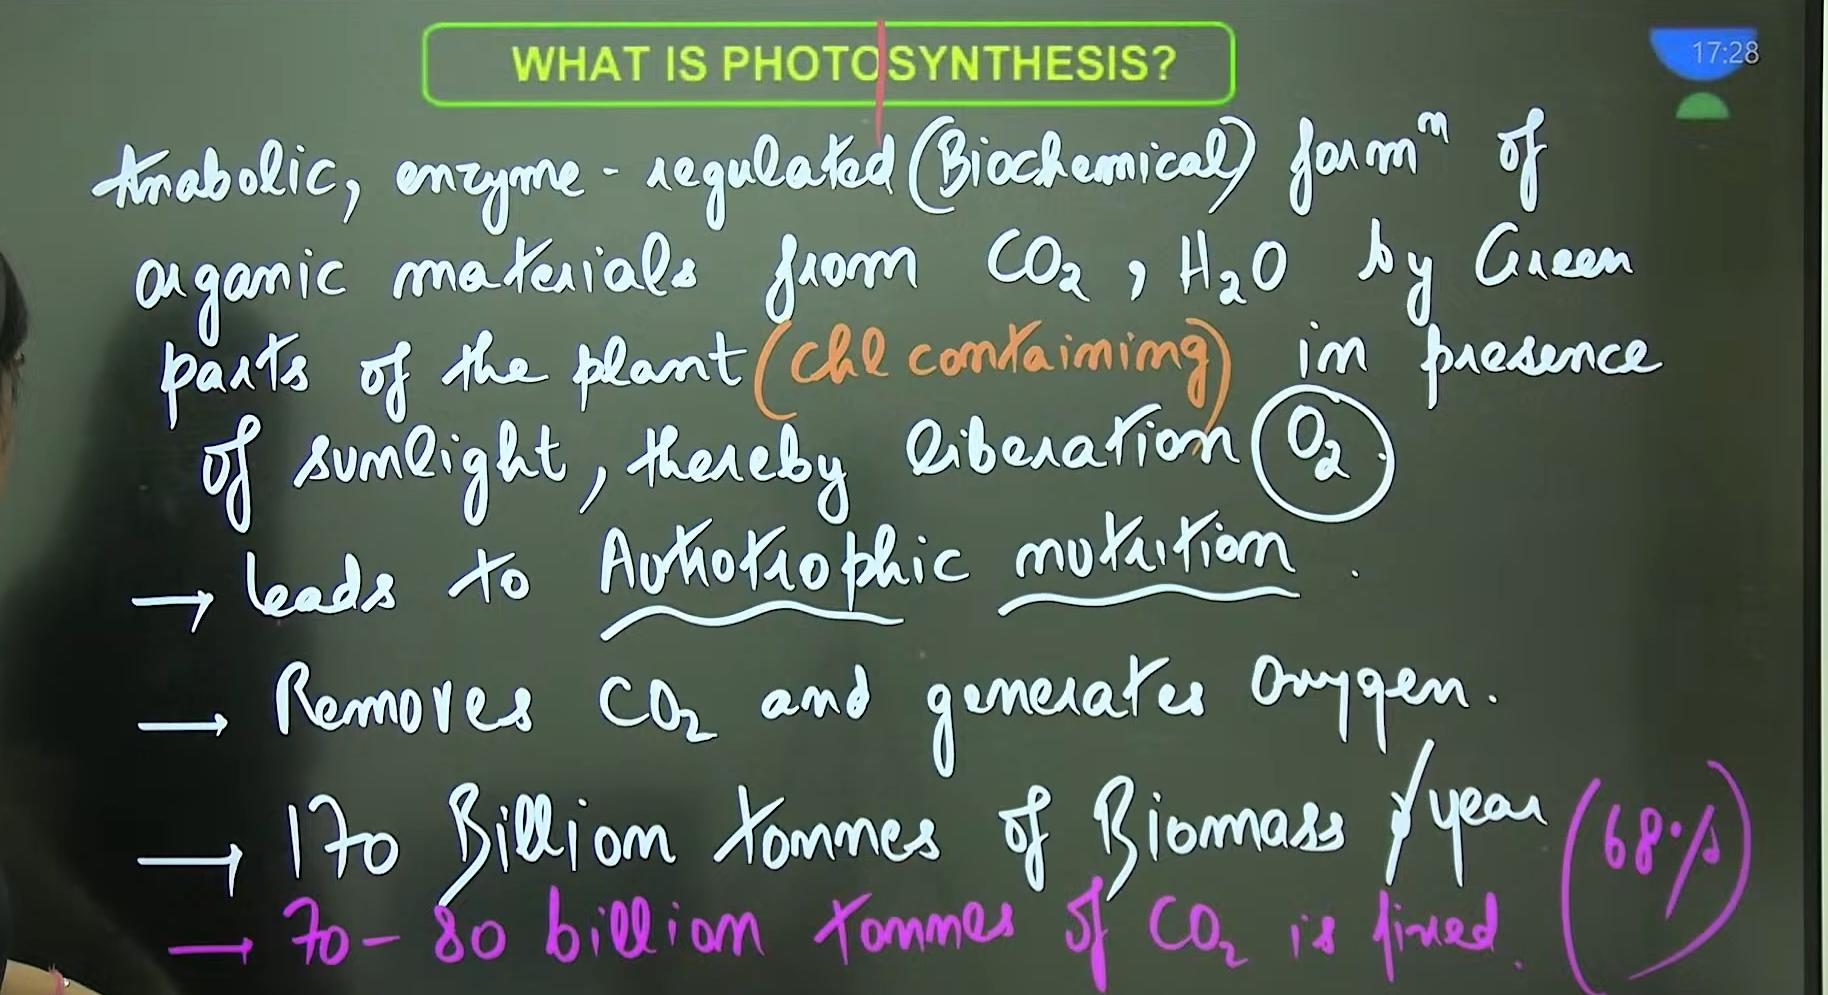 WHAT IS PHOTOSYNTHESIS?
17:28
Anabolic, enzyme-regulated (Biochemical) formⁿ of
organic materials from CO₂, H₂O by Green
parts of the plant (chl containing) in presence
of sunlight, thereby liberation O₂.
→ leads to Autotrophic nutrition.
→ Removes CO₂ and generates Oxygen.
→ 170 Billion tonnes of Biomass /year (68%)
→ 70-80 billion tonnes of CO₂ is fixed.